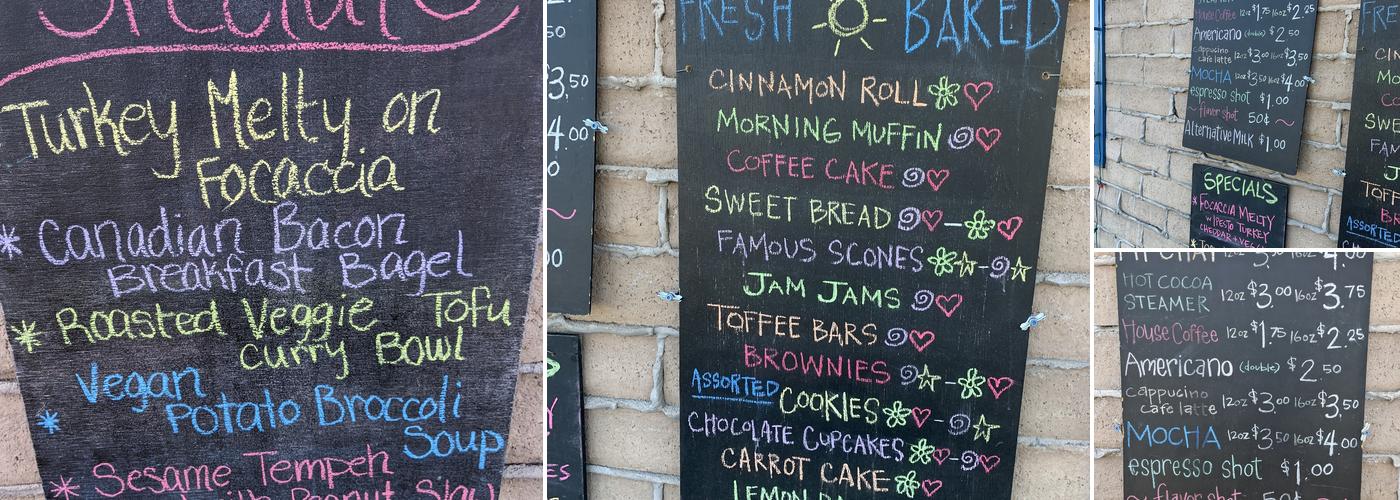 Specials
Turkey Melty on
Focaccia
* Canadian Bacon
Breakfast Bagel
* Roasted Veggie Tofu
Curry Bowl
* Vegan
Potato Broccoli
Soup
* Sesame Tempeh
with Peanut Slaw
50
3.50
4.00
00
FRESH BAKED
CINNAMON ROLL
MORNING MUFFIN
COFFEE CAKE
SWEET BREAD
FAMOUS SCONES
JAM JAMS
TOFFEE BARS
BROWNIES
ASSORTED COOKIES
CHOCOLATE CUPCAKES
CARROT CAKE
LEMON
House Coffee 12oz $1.75 16oz $2.25
Americano (double) $2.50
cappuccino
cafe latte 12oz $3.00 16oz $3.50
MOCHA 12oz $3.50 16oz $4.00
espresso shot $1.00
~ flavor shot 50¢ ~
Alternative Milk $1.00
SPECIALS
* FOCACCIA MELTY
w/ PESTO TURKEY
CHEDDAR + VEGG
HOT COCOA
STEAMER 12oz $3.00 16oz $3.75
House Coffee 12oz $1.75 16oz $2.25
Americano (double) $2.50
cappuccino
cafe latte 12oz $3.00 16oz $3.50
MOCHA 12oz $3.50 16oz $4.00
espresso shot $1.00
~ flavor shot 50¢